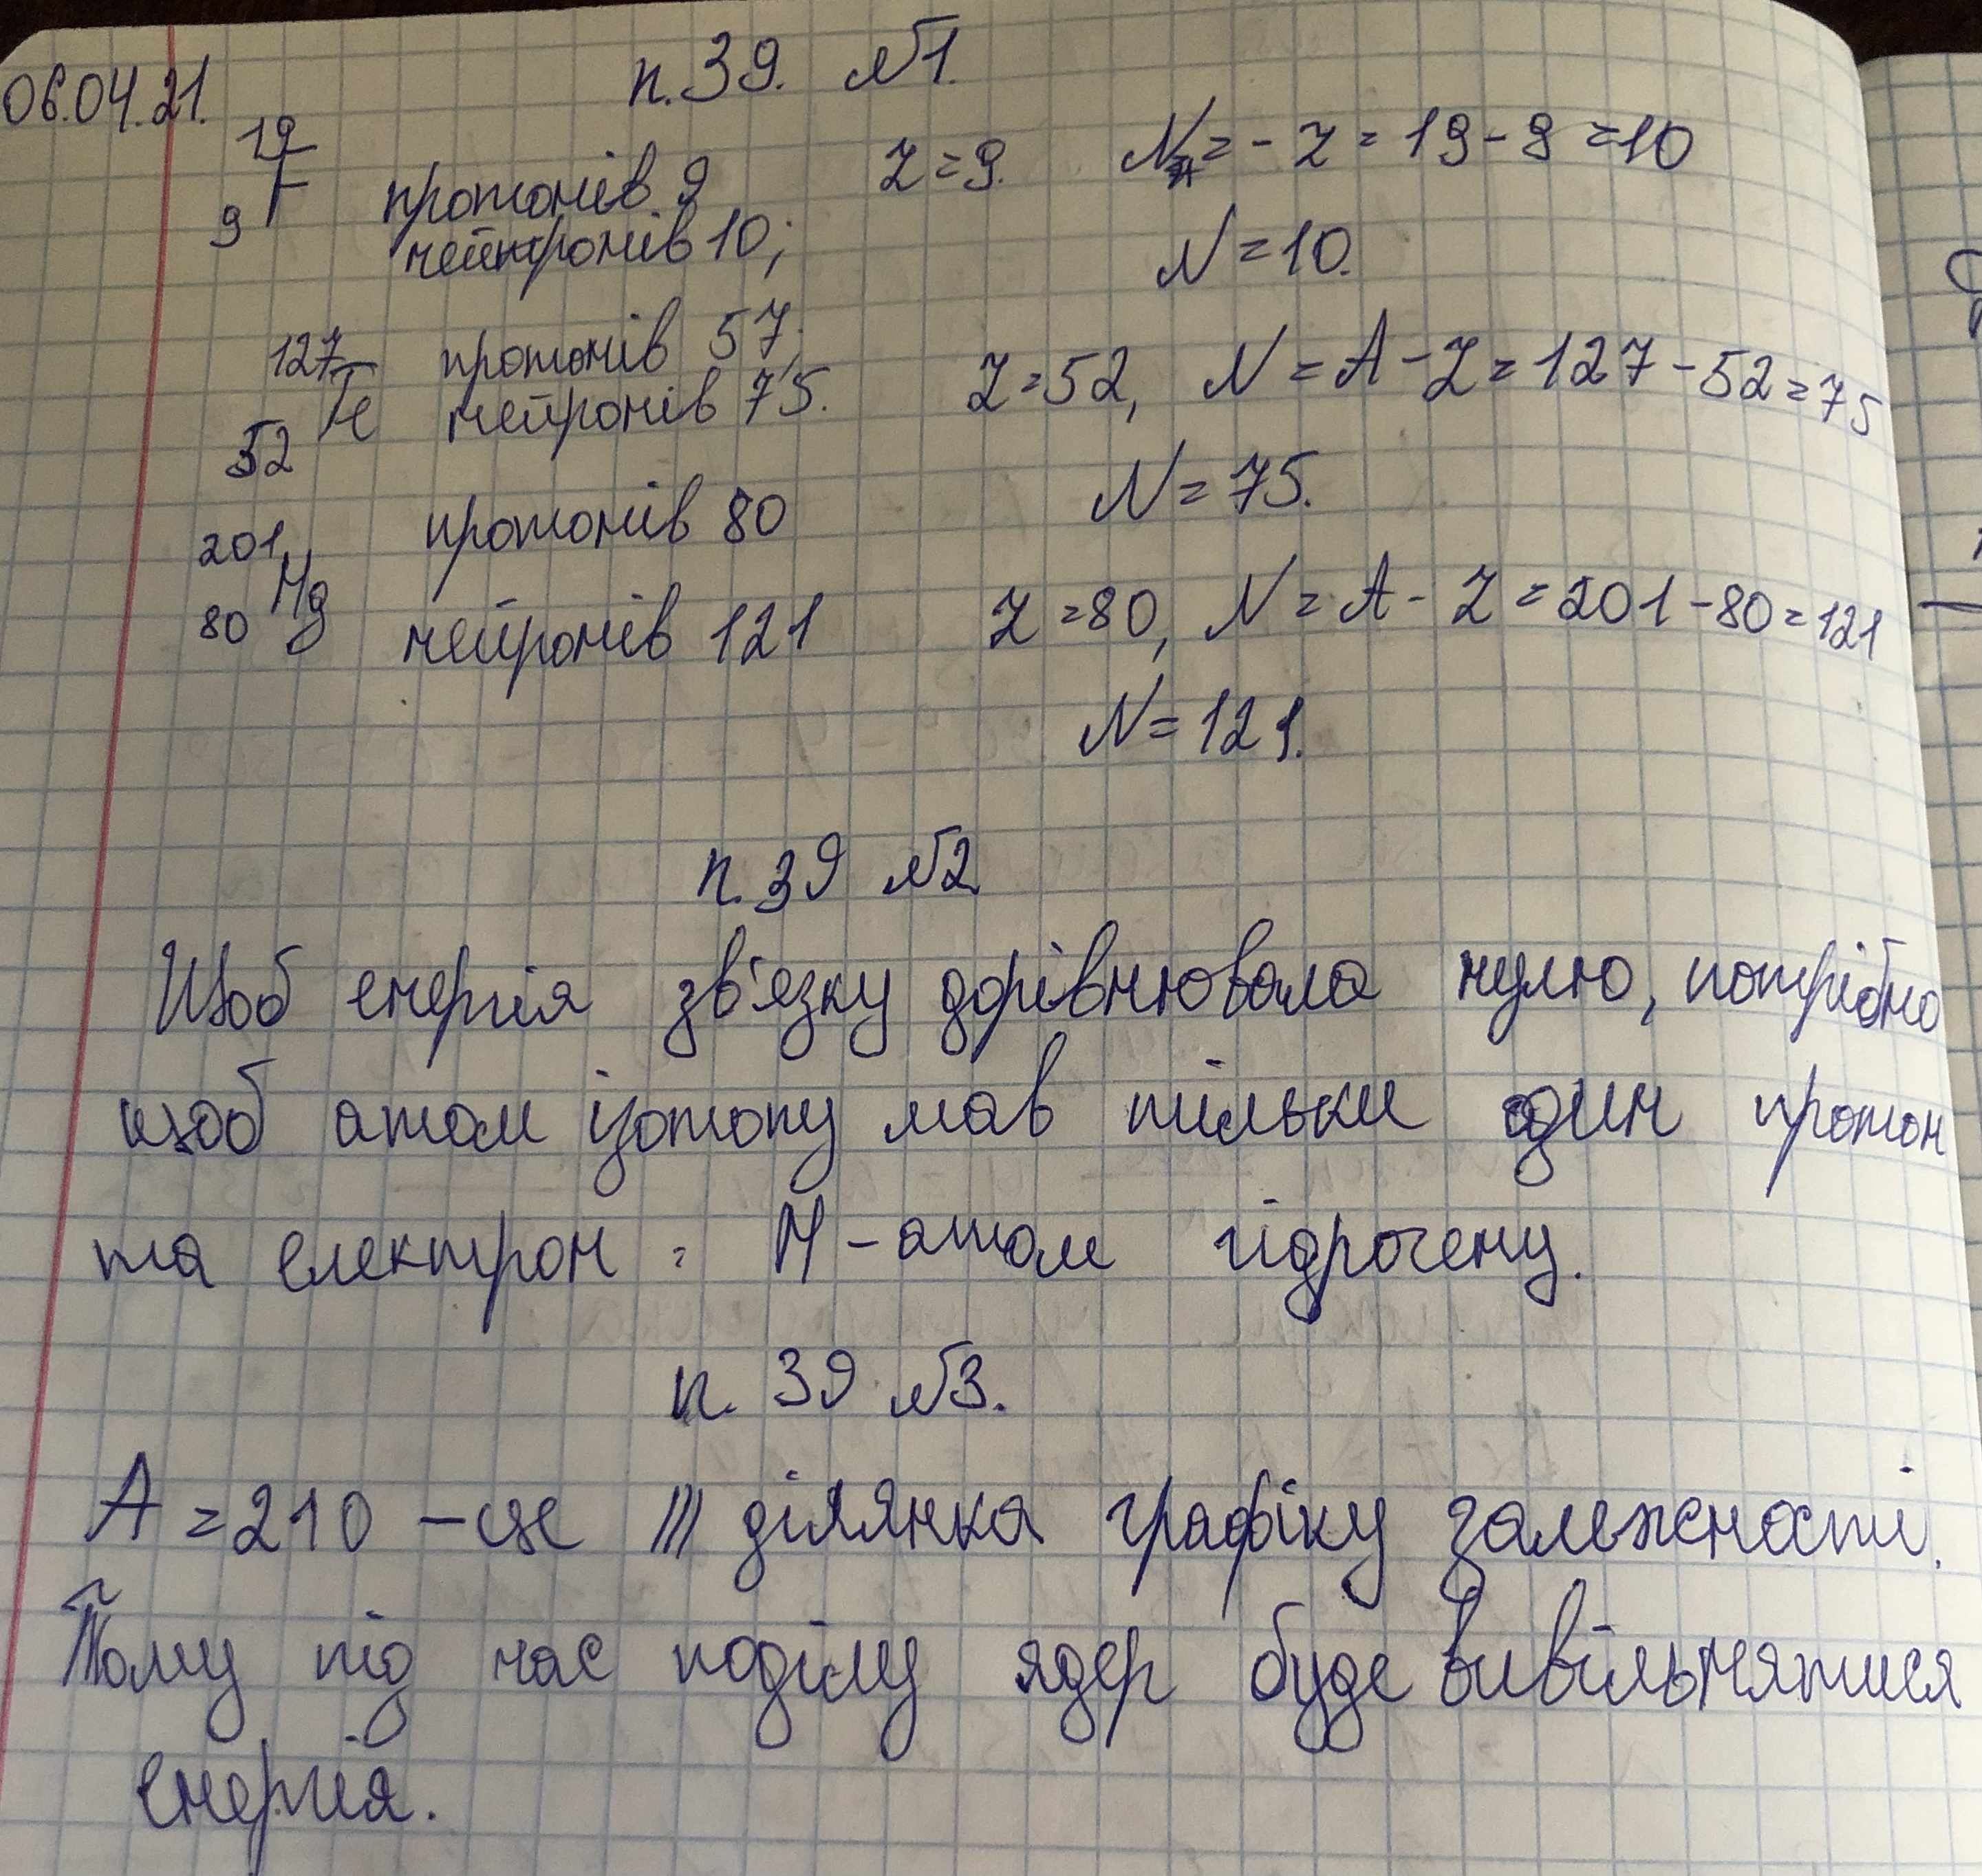 06.04.21. п.39. №1.
19
9 F протонів 9 Z=9. N = - Z = 19 - 9 = 10
нейнтронів 10; N = 10.
127
52 Te протонів 57, Z=52, N = A - Z = 127 - 52 = 75
нейтронів 75.
N = 75.
201
80 Hg протонів 80
нейтронів 121 Z=80, N = A - Z = 201 - 80 = 121
N = 121.
п.39 №2
Щоб енергія зв'язку дорівнювала нулю, потрібно
щоб атом ізотопу мав тільки один протон
та електрон = H - атом гідрогену.
п. 39 №3.
A = 210 - це III ділянка графіку залежності.
Тому під час поділу ядер буде вивільнятися
енергія.